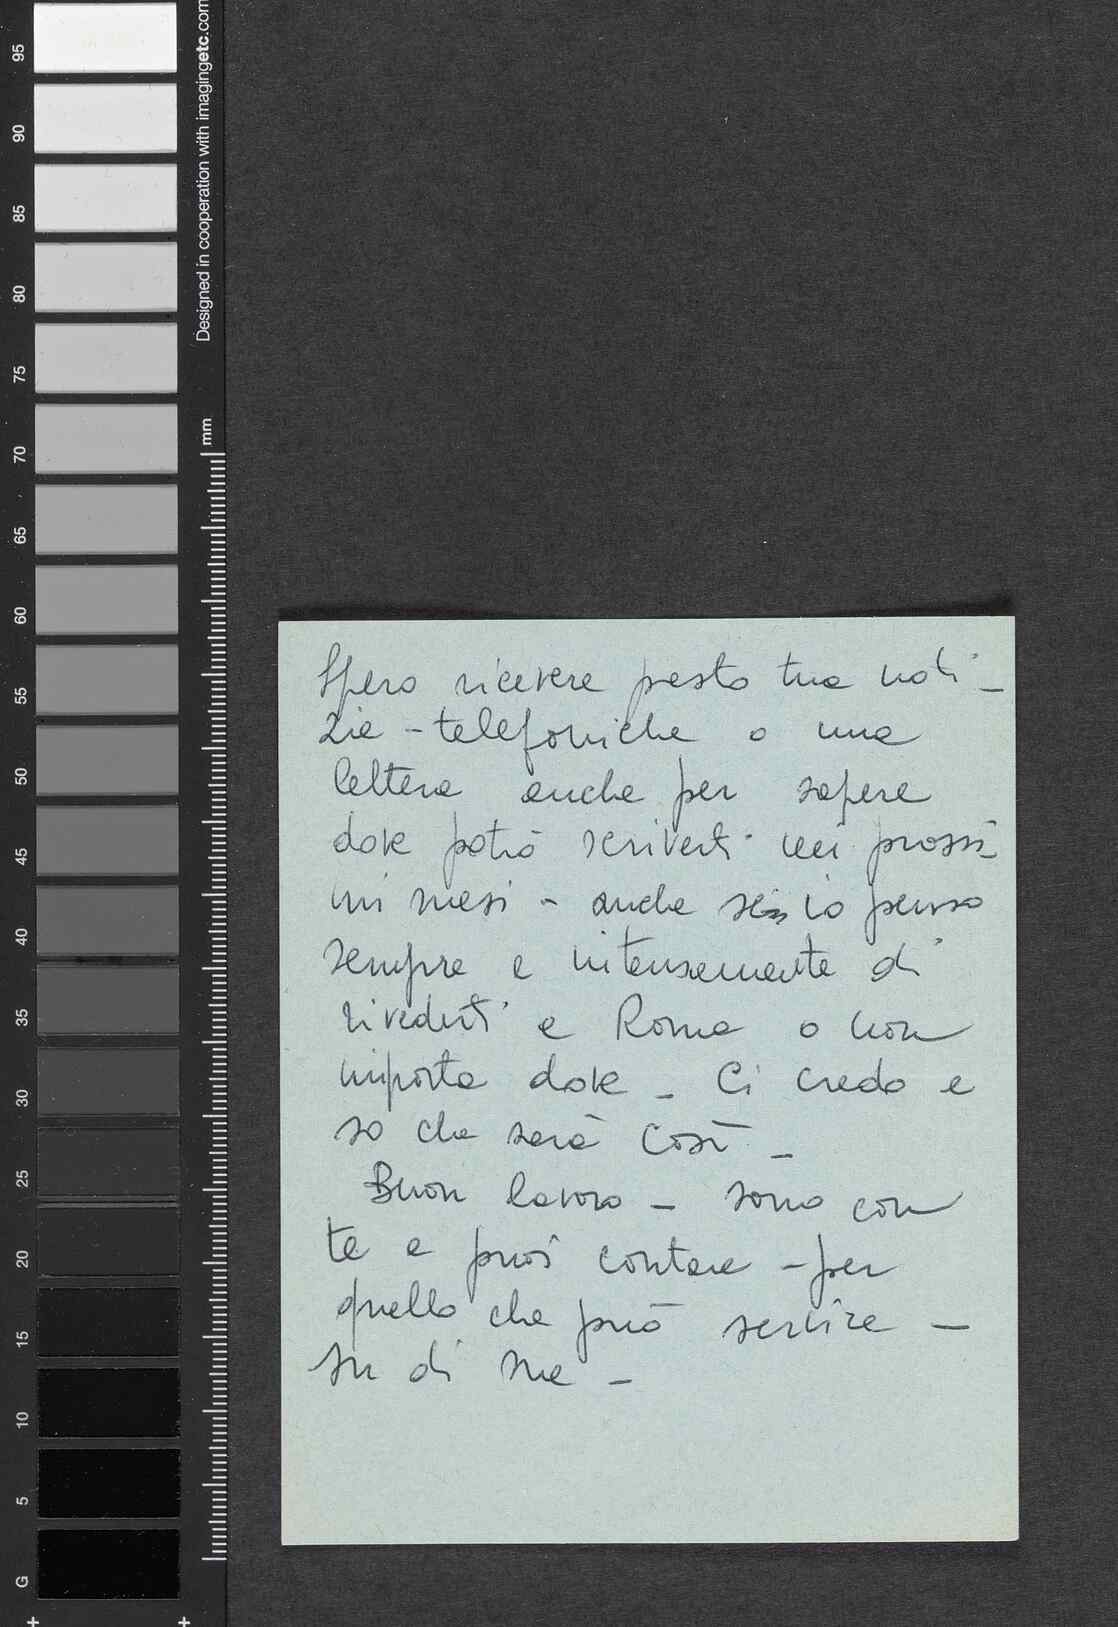 Spero ricevere presto tue noti-
zie - telefoniche o una
lettera anche per sapere
dove potrò scriverti nei prossi
mi mesi - anche se io penso
sempre e intensamente di
rivederti a Roma o non
importa dove - Ci credo e
so che sarà così -
Buon lavoro - sono con
te e puoi contare - per
quello che può servire -
su di me -
95
90
85
80
75
70
65
60
55
50
45
40
35
30
25
20
15
10
5
G
mm
Designed in cooperation with imagingetc.com